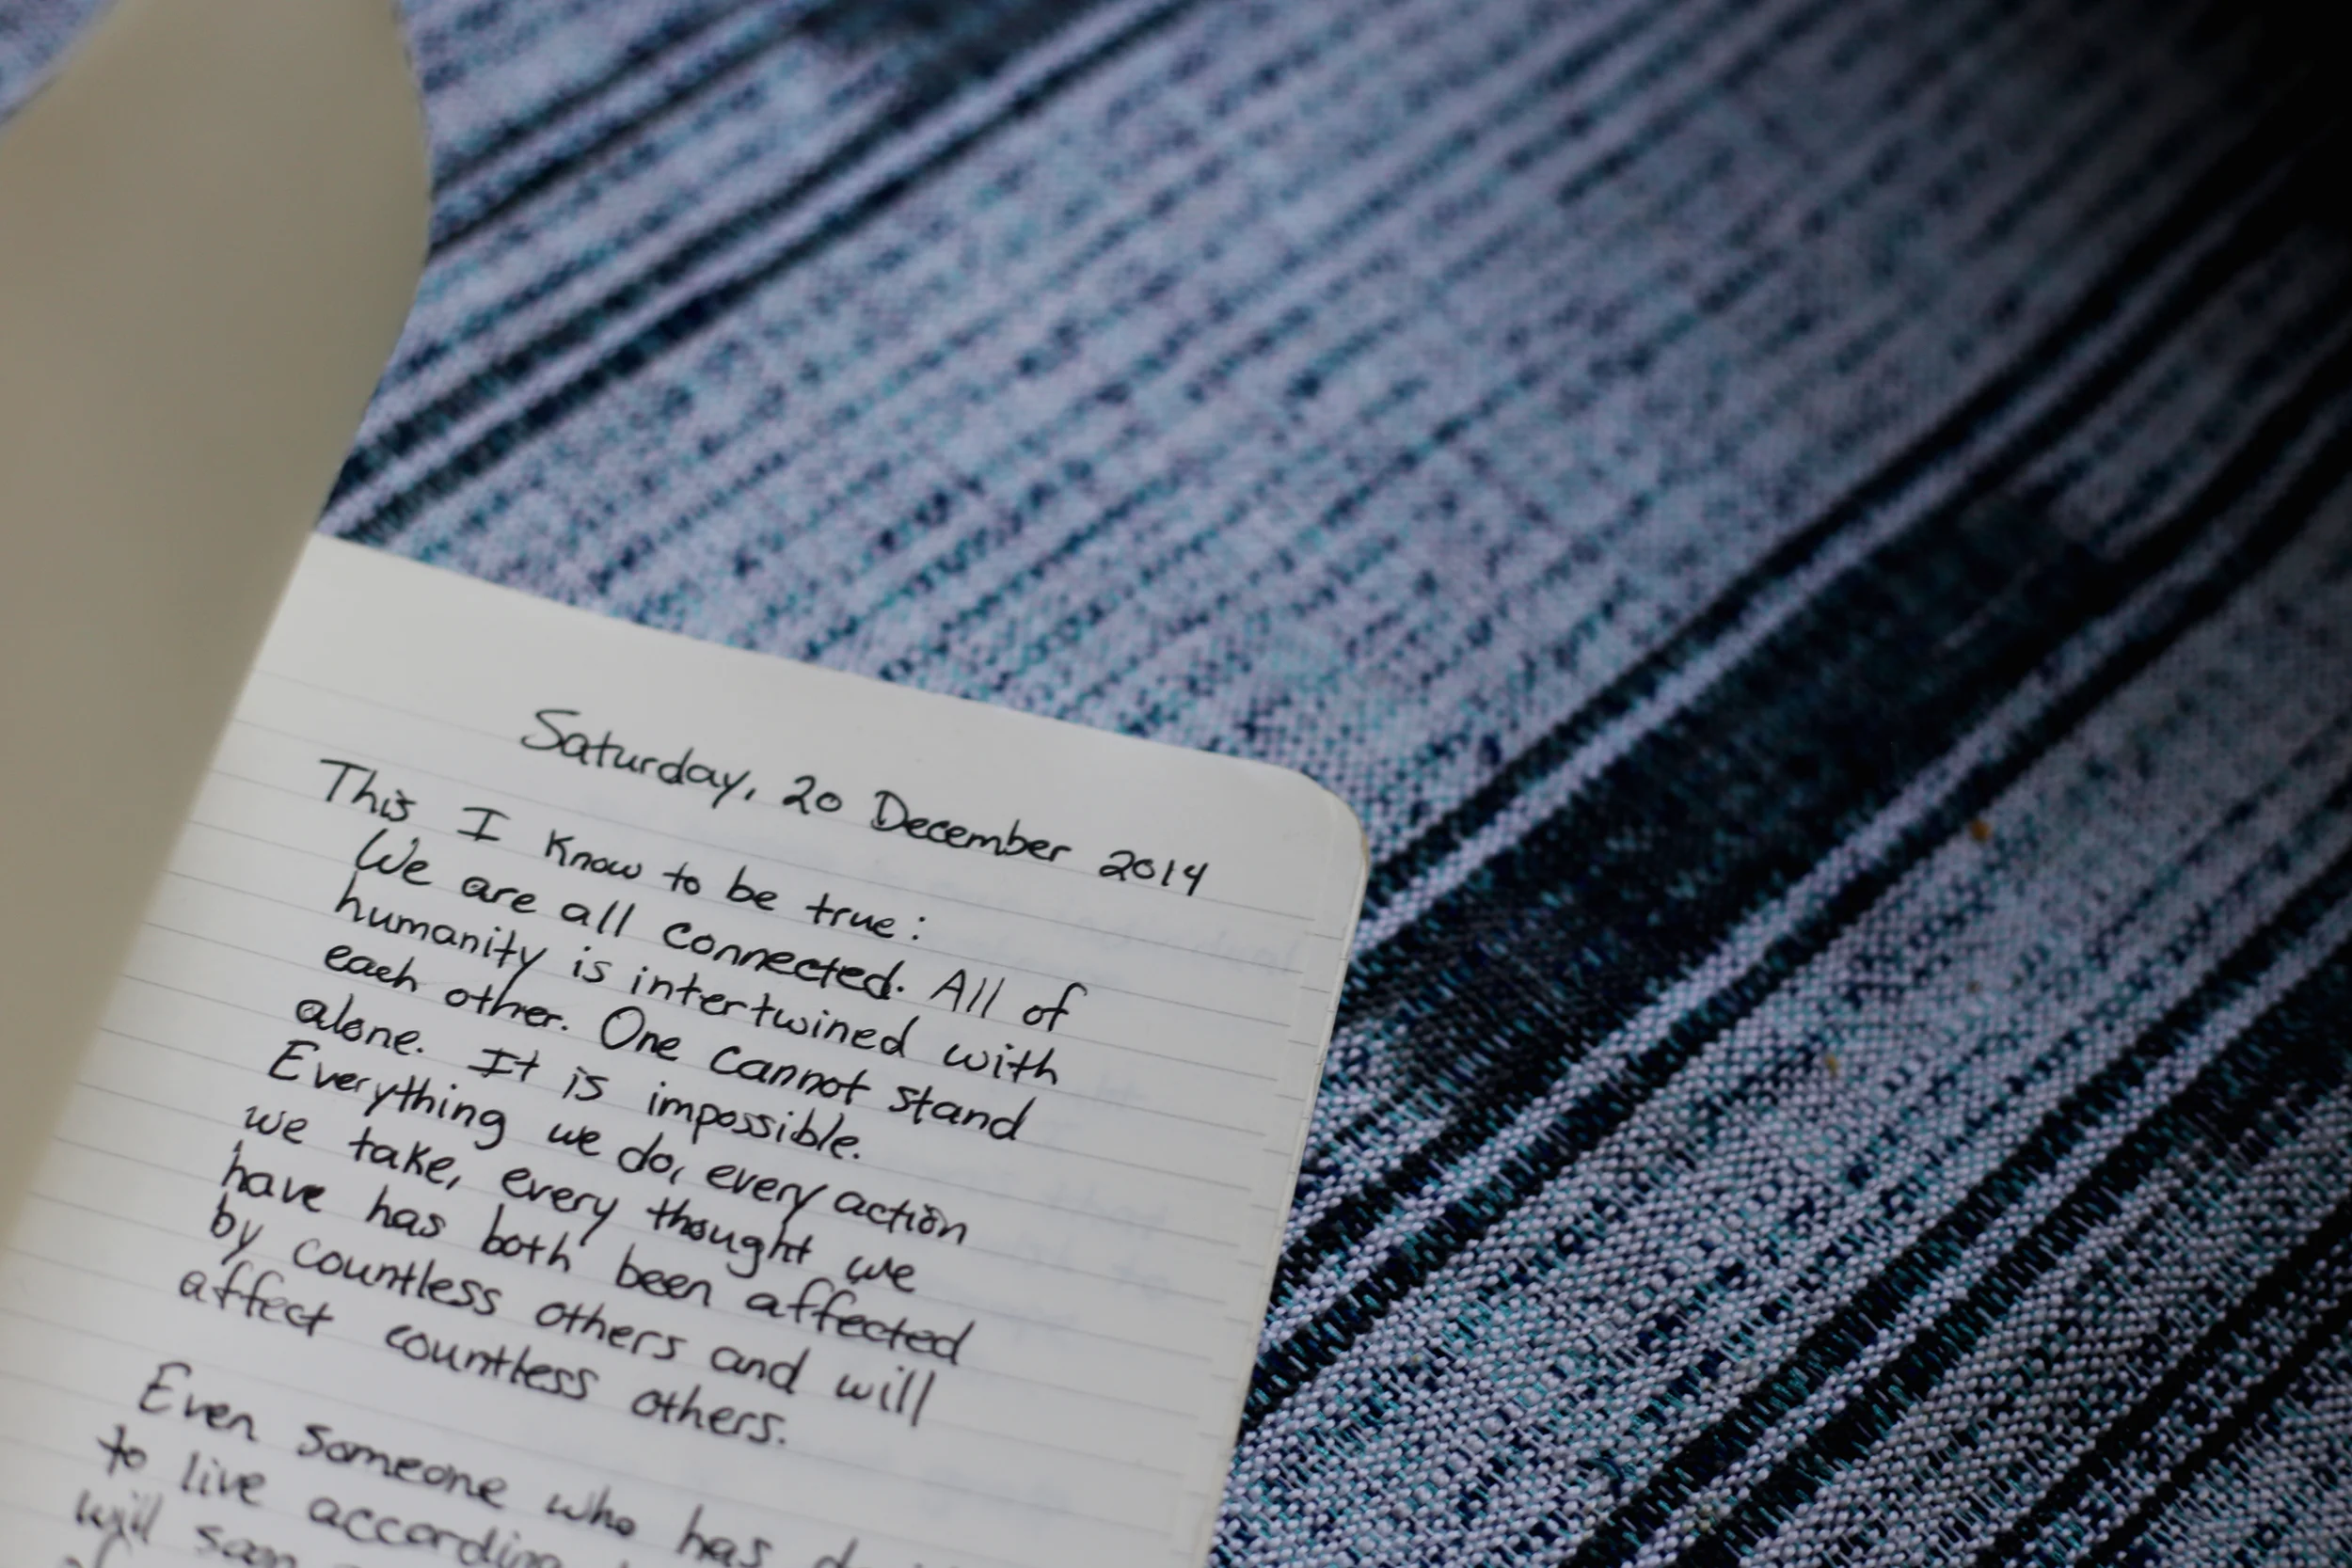 Saturday, 20 December 2014
This I Know to be true:
We are all connected. All of
humanity is intertwined with
each other. One cannot stand
alone. It is impossible.
Everything we do, every action
we take, every thought we
have has both been affected
by countless others and will
affect countless others.
Even someone who has
to live according
will soon